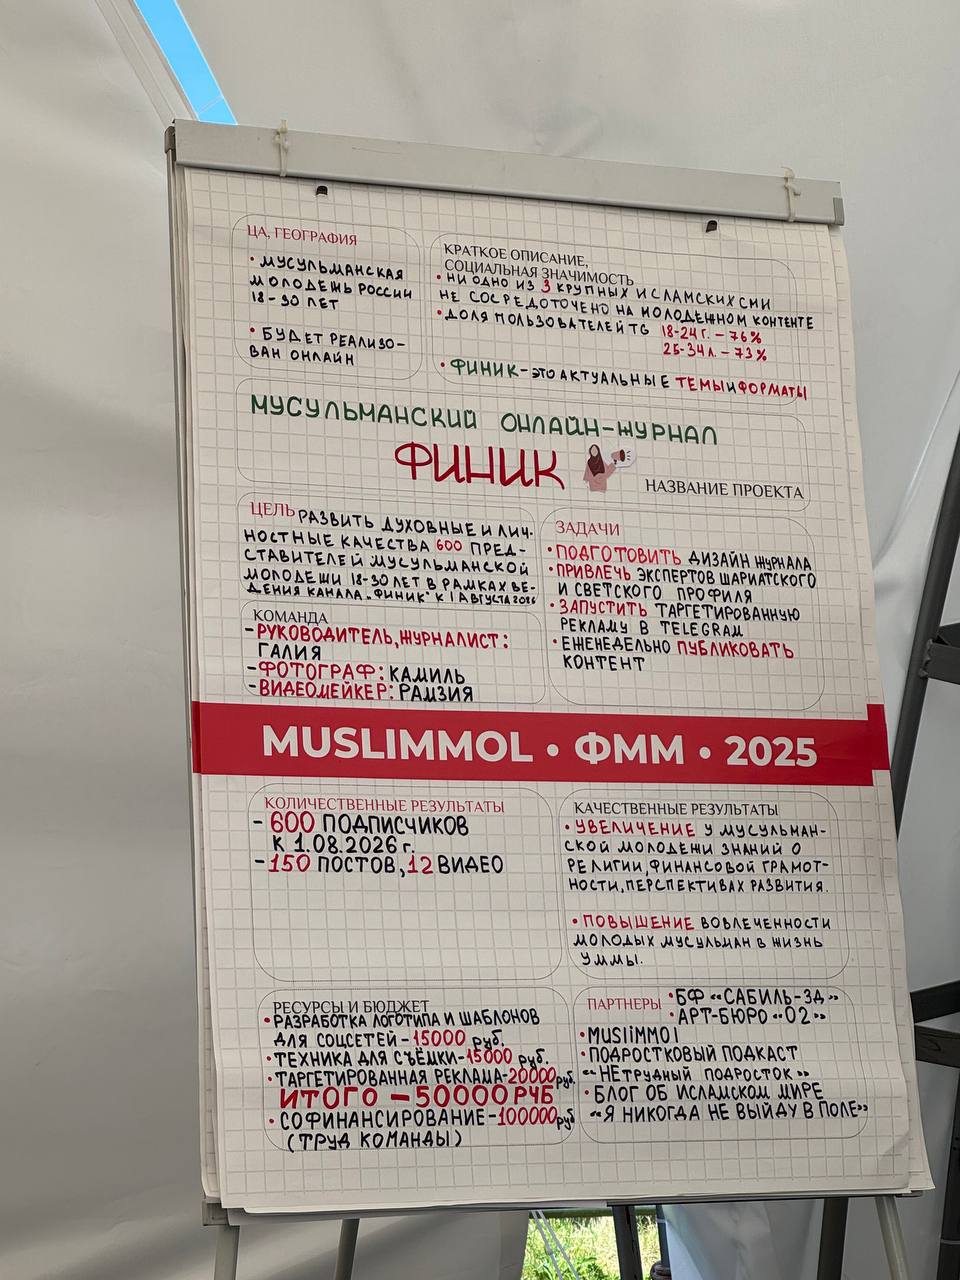 ЦА, ГЕОГРАФИЯ
• МУСУЛЬМАНСКАЯ
МОЛОДЕЖЬ РОССИИ
18-30 ЛЕТ
• БУДЕТ РЕАЛИЗО-
ВАН ОНЛАЙН
КРАТКОЕ ОПИСАНИЕ,
СОЦИАЛЬНАЯ ЗНАЧИМОСТЬ
• НИ ОДНО ИЗ 3 КРУПНЫХ ИСЛАМСКИХ СМИ
НЕ СОСРЕДОТОЧЕНО НА МОЛОДЕЖНОМ КОНТЕНТЕ
• ДОЛЯ ПОЛЬЗОВАТЕЛЕЙ TG 18-24 Г. – 76%
25-34 Л. – 73%
• ФИНИК – ЭТО АКТУАЛЬНЫЕ ТЕМЫ И ФОРМАТЫ
МУСУЛЬМАНСКИЙ ОНЛАЙН-ЖУРНАЛ
ФИНИК
НАЗВАНИЕ ПРОЕКТА
ЦЕЛЬ РАЗВИТЬ ДУХОВНЫЕ И ЛИЧ-
НОСТНЫЕ КАЧЕСТВА 600 ПРЕД-
СТАВИТЕЛЕЙ МУСУЛЬМАНСКОЙ
МОЛОДЕЖИ 18-30 ЛЕТ В РАМКАХ ВЕ-
ДЕНИЯ КАНАЛА „ФИНИК" К 1 АВГУСТА 2026
ЗАДАЧИ
• ПОДГОТОВИТЬ ДИЗАЙН ЖУРНАЛА
• ПРИВЛЕЧЬ ЭКСПЕРТОВ ШАРИАТСКОГО
И СВЕТСКОГО ПРОФИЛЯ
• ЗАПУСТИТЬ ТАРГЕТИРОВАННУЮ
РЕКЛАМУ В TELEGRAM
• ЕЖЕНЕДЕЛЬНО ПУБЛИКОВАТЬ
КОНТЕНТ
КОМАНДА
- РУКОВОДИТЕЛЬ, ЖУРНАЛИСТ:
ГАЛИЯ
- ФОТОГРАФ: КАМИЛЬ
- ВИДЕОМЕЙКЕР: РАМЗИЯ
MUSLIMMOL • ФММ • 2025
КОЛИЧЕСТВЕННЫЕ РЕЗУЛЬТАТЫ
- 600 ПОДПИСЧИКОВ
К 1.08.2026 г.
- 150 ПОСТОВ, 12 ВИДЕО
КАЧЕСТВЕННЫЕ РЕЗУЛЬТАТЫ
• УВЕЛИЧЕНИЕ У МУСУЛЬМАН-
СКОЙ МОЛОДЕЖИ ЗНАНИЙ О
РЕЛИГИИ, ФИНАНСОВОЙ ГРАМОТ-
НОСТИ, ПЕРСПЕКТИВАХ РАЗВИТИЯ.
• ПОВЫШЕНИЕ ВОВЛЕЧЕННОСТИ
МОЛОДЫХ МУСУЛЬМАН В ЖИЗНЬ
УММЫ.
РЕСУРСЫ И БЮДЖЕТ
• РАЗРАБОТКА ЛОГОТИПА И ШАБЛОНОВ
ДЛЯ СОЦСЕТЕЙ – 15000 руб.
• ТЕХНИКА ДЛЯ СЪЁМКИ – 15000 руб.
• ТАРГЕТИРОВАННАЯ РЕКЛАМА – 20000 руб.
ИТОГО – 50000 РУБ
• СОФИНАНСИРОВАНИЕ – 100000 руб
(ТРУД КОМАНДЫ)
ПАРТНЕРЫ • БФ «САБИЛЬ-ЗД»
• АРТ-БЮРО «О2»
• MUSLiMMOl
• ПОДРОСТКОВЫЙ ПОДКАСТ
«НЕТРУДНЫЙ ПОДРОСТОК»
• БЛОГ ОБ ИСЛАМСКОМ МИРЕ
«Я НИКОГДА НЕ ВЫЙДУ В ПОЛЕ»